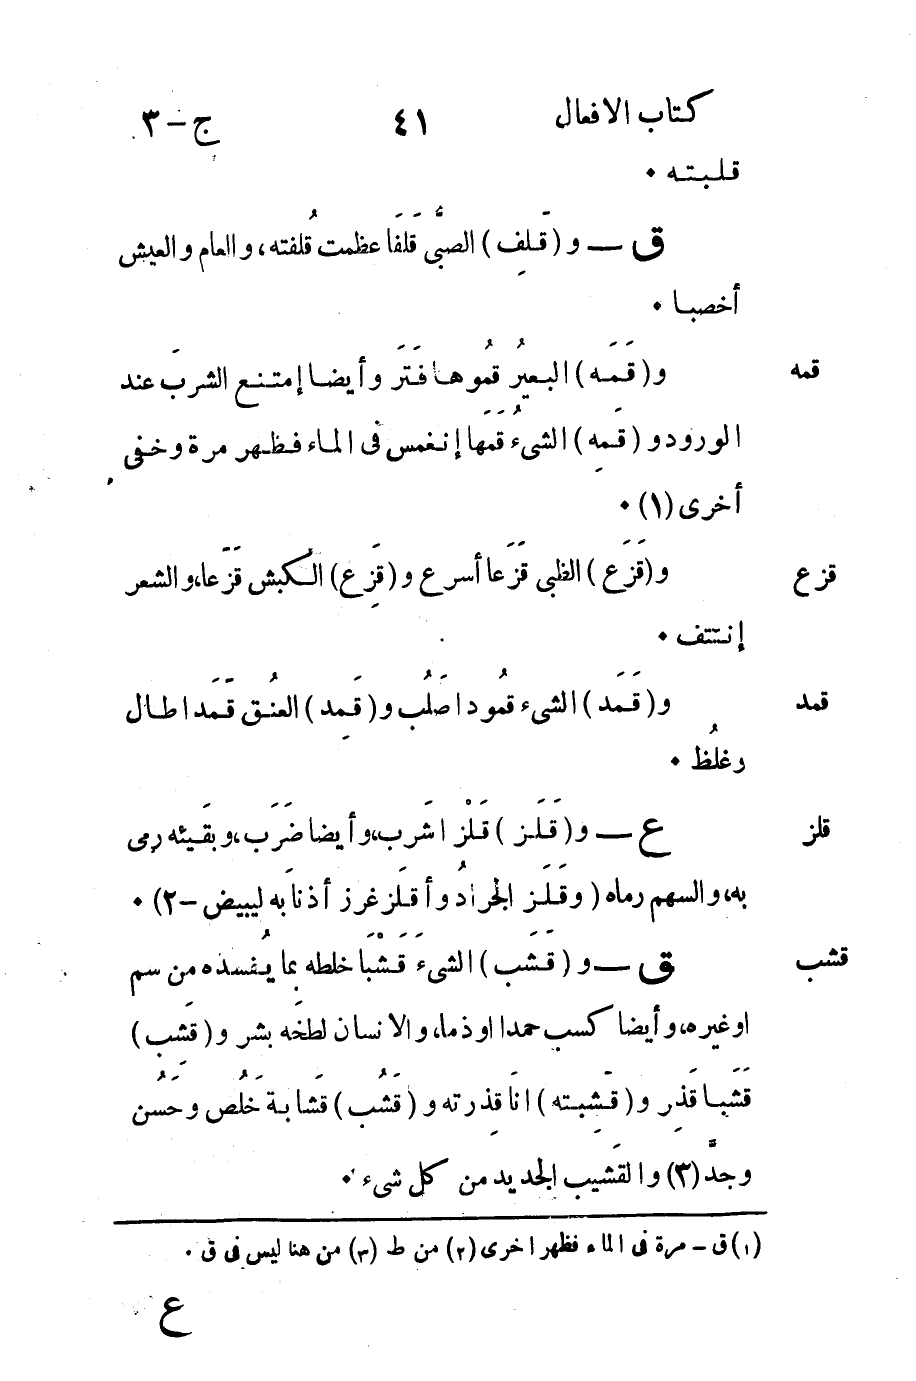 كتاب الافعال ٤١ ج-٣
قلبته ٠
ق — و (قَلِف) الصبىُّ قَلَفَا عظمت قُلفته، والعام والعيش
أخصبا ٠
قمه و(قَمَه) البعيرُ قمُوها فَتَر وأيضا إمتنع الشربَ عند
الورود و (قَمِه) الشىءُ قَمَها إنغمس فى الماء فظهر مرة وخفى
أخرى (١) ٠
قزع و(قَزَع) الظبى قَزَعا أسرع و(قَزِع) الكبش قَزَعا، والشعر
إنتتف ٠
قمد و(قَمَد) الشىء قمُودا صَلُب و(قَمِد) العنُق قَمَدا طال
وغلُظ ٠
قلز ع — و(قَلَز) قَلْزا شَرب، وأيضا ضَرَب، وبقَيئه رمى
به، والسهم رماه (وقَلَز الجرادُ وأقلَز غرز أذنابَه ليبيض -٢) ٠
قشب ق — و (قَشَب) الشىءَ قَشْبَا خلطه بما يُفسده من سم
اوغيره، وأيضا كسب حمدا اوذما، والانسان لطخَه بشر و(قَشِب)
قَشَبا قَذِر و(قَشِبته) انا قَذِرته و(قَشُب) قَشابة خَلُص وحَسُن
وجدَّ (٣) والقَشِيب الجديد من كل شىء ٠
(١) ق - مرة فى الماء فظهر اخرى (٢) من ط (٣) من هنا ليس فى ق ٠
ع